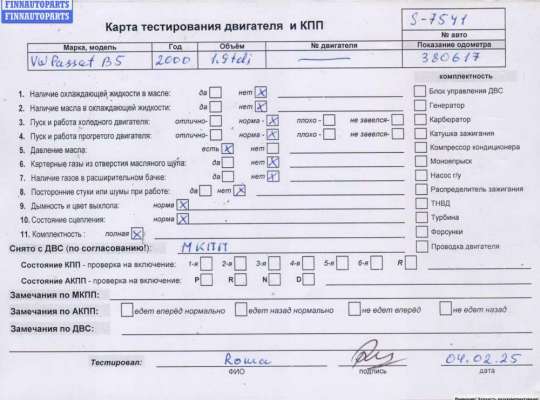 FINNAUTOPARTS
FINNAUTOPARTS
Карта тестирования двигателя и КПП
S-7541
№ авто
Марка, модель Год Объём № двигателя Показание одометра
VW Passat B5 2000 1.9tdi 380617
комплектность
1. Наличие охлаждающей жидкости в масле: да нет x
2. Наличие масла в охлаждающей жидкости: да нет x
3. Пуск и работа холодного двигателя: отлично- норма - x плохо - не завелся-
4. Пуск и работа прогретого двигателя: отлично- норма - x плохо - не завелся-
5. Давление масла: есть x нет
6. Картерные газы из отверстия масляного щупа: да нет x
7. Наличие газов в расширительном бачке: да нет x
8. Посторонние стуки или шумы при работе: да нет x
9. Дымность и цвет выхлопа: норма x
10. Состояние сцепления: норма x
11. Комплектность : полная x
Блок управления ДВС
Генератор
Карбюратор
Катушка зажигания
Компрессор кондиционера
Моновпрыск
Насос г/у
Распределитель зажигания
ТНВД
Турбина
Форсунки
Проводка двигателя
Снято с ДВС (по согласованию!): МКПП
Состояние КПП - проверка на включение: 1-я 2-я 3-я 4-я 5-я 6-я R
Состояние АКПП - проверка на включение: P R N D
Замечания по МКПП:
Замечания по АКПП: едет вперёд нормально едет назад нормально не едет вперёд не едет назад
Замечания по ДВС:
Тестировал: Roma 04.02.25
ФИО подпись дата